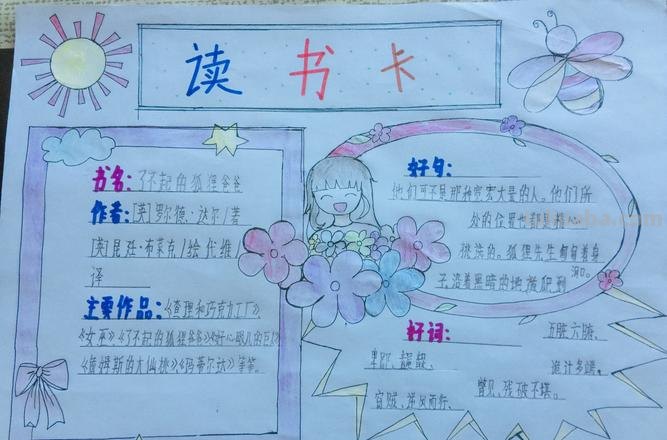 读书卡
书名:了不起的狐狸爸爸
作者:[英]罗尔德·达尔/著
[英]昆廷·布莱克/绘 代维/
译
主要作品:《查理和巧克力工厂》、
《女巫》《了不起的狐狸爸爸》《好心眼儿的巨人》
《詹姆斯的大仙桃》《玛蒂尔达》等等。
好句:
他们可不是那种宽宏大量的人。他们所
处的位置也都是精心
挑选的。狐狸先生匍匐着身
子沿着黑暗的地道爬到
洞口。
好词:
五脏六腑、
卑鄙、龌龊、
诡计多端、
盲贼、逆风而行、
瞥见、残破不堪。